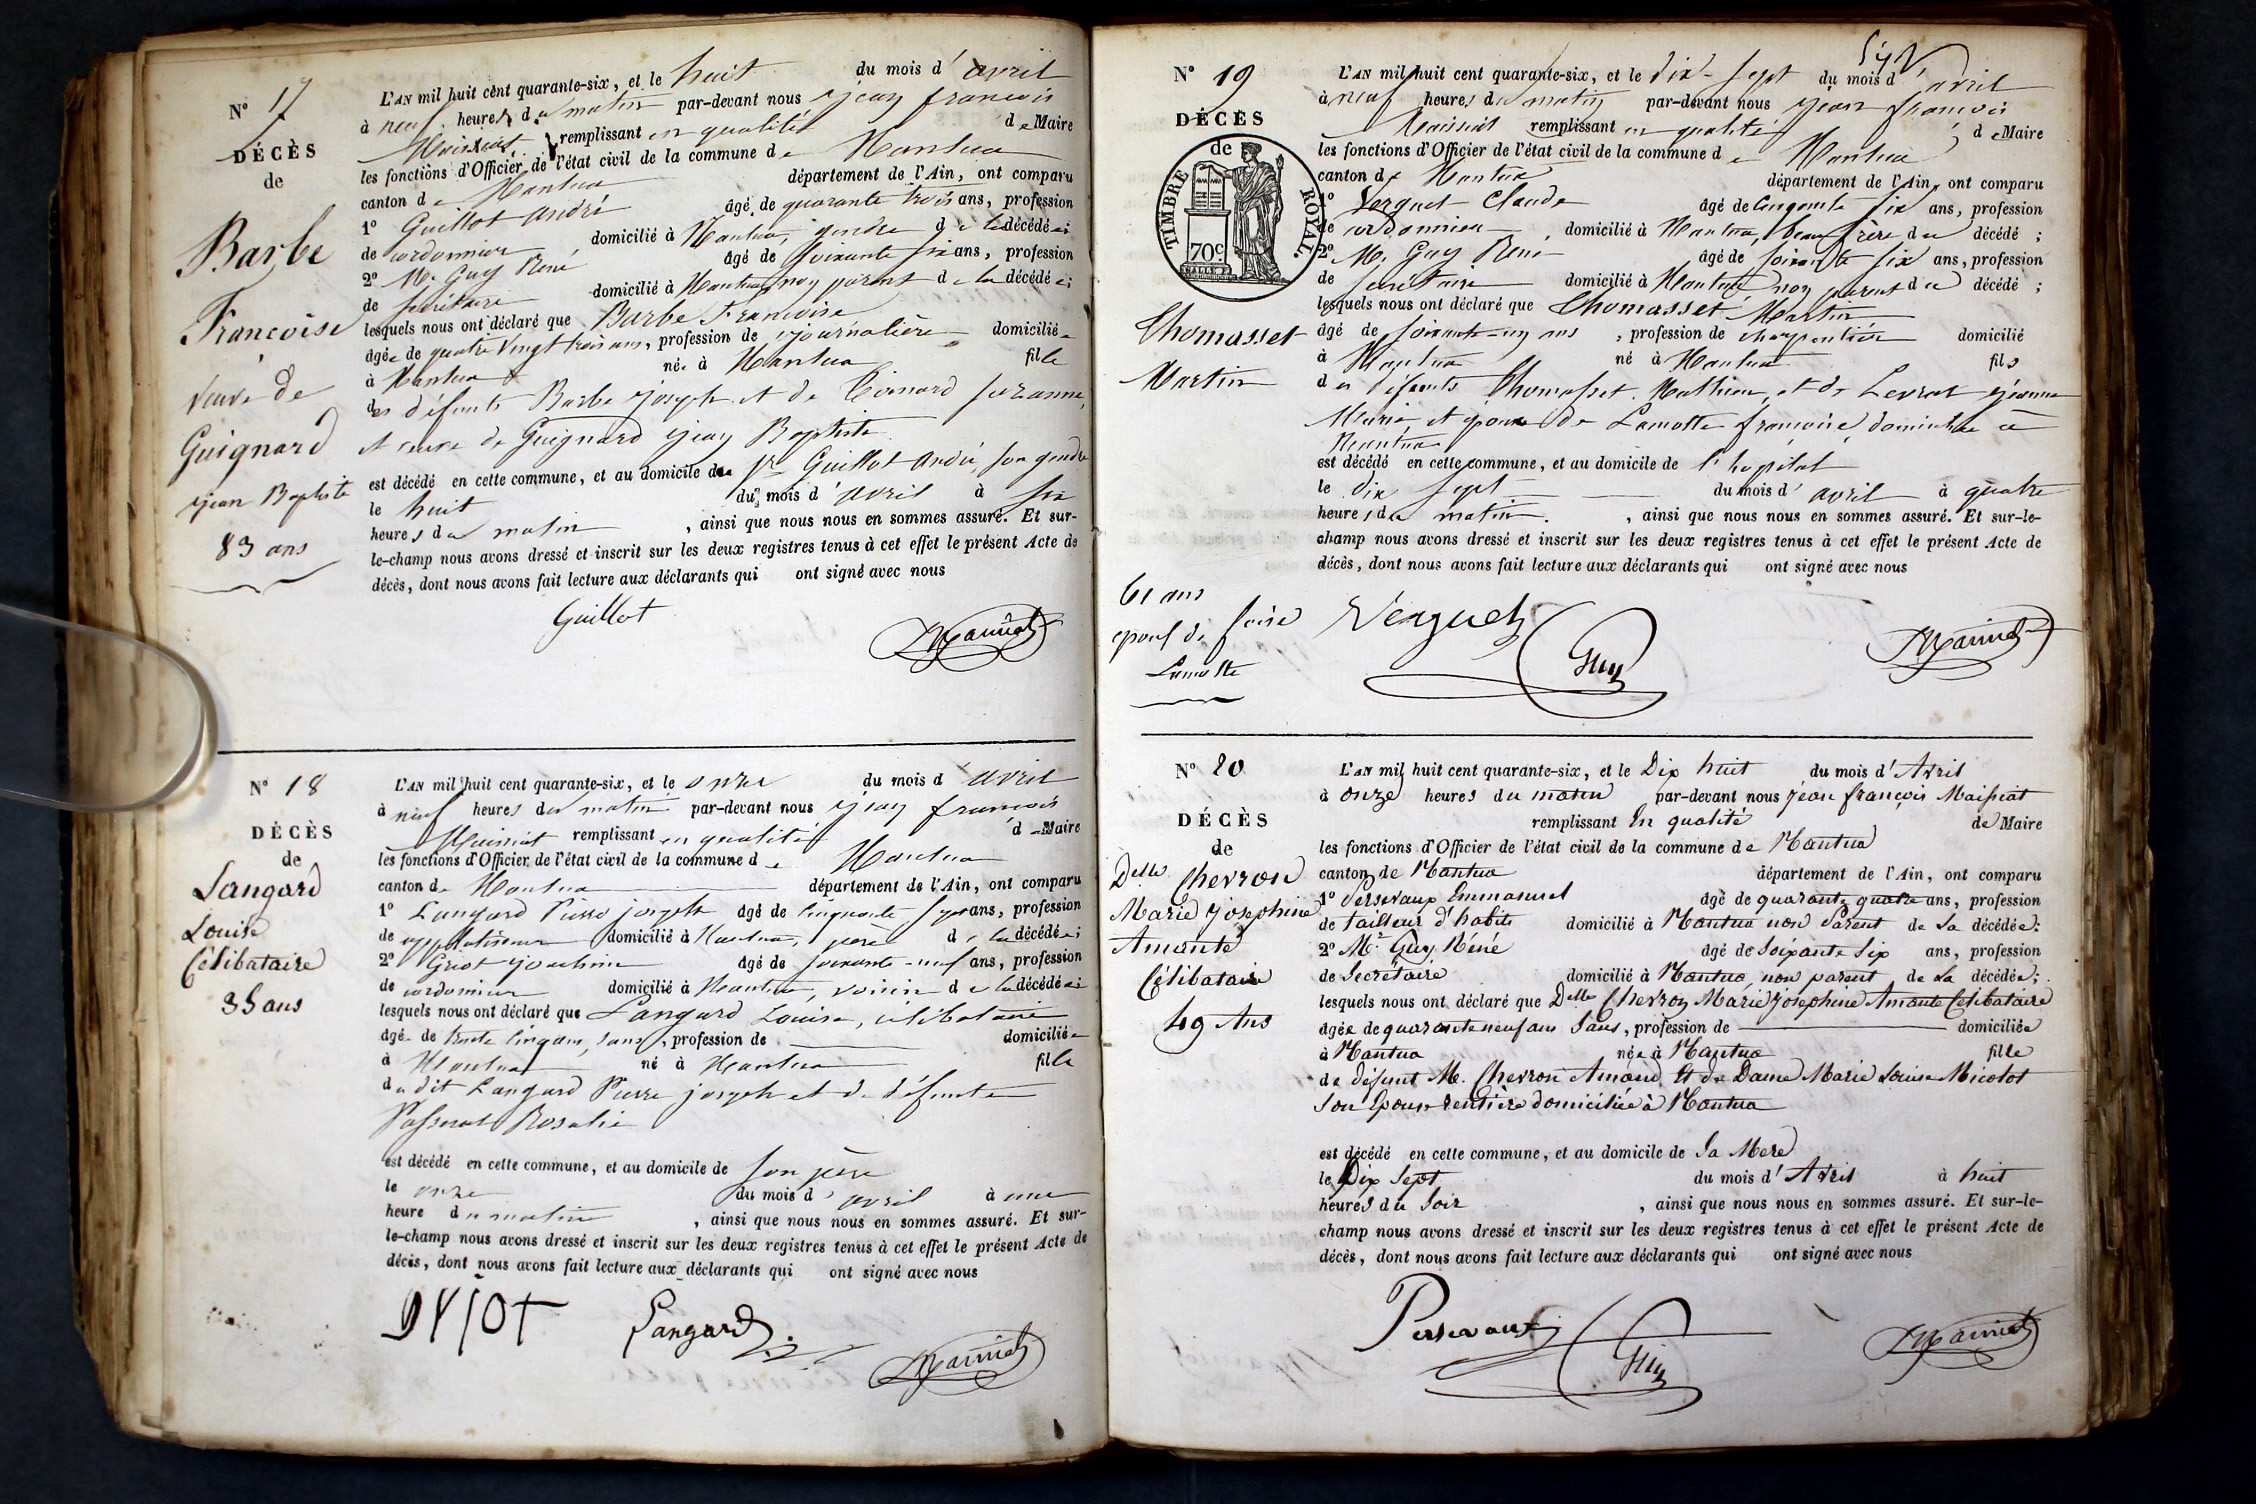 N° 17
DÉCÈS
de
Barbe
Francoise
veuve de
Guignard
jean Baptiste
83 ans
L'AN mil huit cent quarante-six, et le huit du mois d'avril
à neuf heures du matin par-devant nous jean francois
Maissiat remplissant en qualité de Maire
les fonctions d'Officier de l'état civil de la commune de Nantua
canton de Nantua département de l'Ain, ont comparu
1° Guillot André âgé de quarante trois ans, profession
de cordonnier domicilié à Nantua, gendre de la décédée;
2° Mr. Guy René âgé de soixante six ans, profession
de secrétaire domicilié à Nantua, non parent de la décédée;
lesquels nous ont déclaré que Barbe Francoise
âgée de quatre vingt trois ans, profession de journalière domiciliée
à Nantua née à Nantua fille
des défunts Barbe joseph et de suzanne,
et veuve de Guignard jean Baptiste
est décédé en cette commune, et au domicile de sr Guillot André, son gendre
le huit du mois d'avril à six
heures du matin, ainsi que nous nous en sommes assuré. Et sur-
le-champ nous avons dressé et inscrit sur les deux registres tenus à cet effet le présent Acte de
décès, dont nous avons fait lecture aux déclarants qui ont signé avec nous
Guillot Maissiat
N° 18
DÉCÈS
de
Langard
Louise
Célibataire
35 ans
L'AN mil huit cent quarante-six, et le onze du mois d'avril
à neuf heures du matin par-devant nous jean françois
Maissiat remplissant en qualité de Maire
les fonctions d'Officier de l'état civil de la commune de Nantua
canton de Nantua département de l'Ain, ont comparu
1° Langard Pierre joseph âgé de cinquante sept ans, profession
de domicilié à Nantua, père de la décédée;
2° Griot joachim âgé de soixante-neuf ans, profession
de cordonnier domicilié à Nantua, voisin de la décédée;
lesquels nous ont déclaré que Langard Louise, célibataire
âgé de trente cinq ans, sans, profession de domiciliée
à Nantua né à Nantua fille
du dit Langard Pierre joseph et de défunte
Passerat Rosalie
est décédé en cette commune, et au domicile de son père
le onze du mois d'avril à une
heure du matin, ainsi que nous nous en sommes assuré. Et sur-
le-champ nous avons dressé et inscrit sur les deux registres tenus à cet effet le présent Acte de
décès, dont nous avons fait lecture aux déclarants qui ont signé avec nous
Langard Maissiat
N° 19
DÉCÈS
de
TIMBRE ROYAL.
70c
Thomasset
Martin
61 ans
epoux de fcoise
Lamotte
L'AN mil huit cent quarante-six, et le dix-sept du mois d'avril
à neuf heures du matin par-devant nous jean francois
Maissiat remplissant en qualité de Maire
les fonctions d'Officier de l'état civil de la commune de Nantua
canton de Nantua département de l'Ain, ont comparu
1° Verguet Claude âgé de cinquante six ans, profession
de cordonnier domicilié à Nantua, beau frere du décédé;
2° Mr. Guy René âgé de soixante six ans, profession
de secrétaire domicilié à Nantua non parent du décédé;
lesquels nous ont déclaré que Thomasset Martin
âgé de soixante-un ans, profession de charpentier domicilié
à Nantua né à Nantua fils
des défunts Thomasset Mathieu, et de Levrat jeanne
Marie, et époux de Lamotte francoise, domiciliée à
Nantua
est décédé en cette commune, et au domicile de l'hopital
le dix sept du mois d'avril à quatre
heures du matin, ainsi que nous nous en sommes assuré. Et sur-le-
champ nous avons dressé et inscrit sur les deux registres tenus à cet effet le présent Acte de
décès, dont nous avons fait lecture aux déclarants qui ont signé avec nous
Verguet Guy Maissiat
N° 20
DÉCÈS
de
Delle Chevron
Marie Josephine
Amante
Célibataire
49 Ans
L'AN mil huit cent quarante-six, et le Dix huit du mois d'Avril
à onze heures du matin par-devant nous jean françois Maissiat
remplissant En qualité de Maire
les fonctions d'Officier de l'état civil de la commune de Nantua
canton de Nantua département de l'Ain, ont comparu
1° Persevaux Emmanuel âgé de quarante quatre ans, profession
de tailleur d'habits domicilié à Nantua non Parent de la décédée;
2° Mr. Guy Réné âgé de Soixante Six ans, profession
de Secrétaire domicilié à Nantua, non parent de la décédée;
lesquels nous ont déclaré que Delle Chevron Marie josephine Amante Célibataire
âgée de quarante neuf ans Sans, profession de domiciliée
à Nantua née à Nantua fille
de défunt M. Chevron Amand Et de Dame Marie Louise Micolot
Son Epouse rentière domiciliée à Nantua
est décédé en cette commune, et au domicile de Sa Mere
le Dix Sept du mois d'Avril à huit
heures du Soir, ainsi que nous nous en sommes assuré. Et sur-le-
champ nous avons dressé et inscrit sur les deux registres tenus à cet effet le présent Acte de
décès, dont nous avons fait lecture aux déclarants qui ont signé avec nous
Persevaux Guy Maissiat